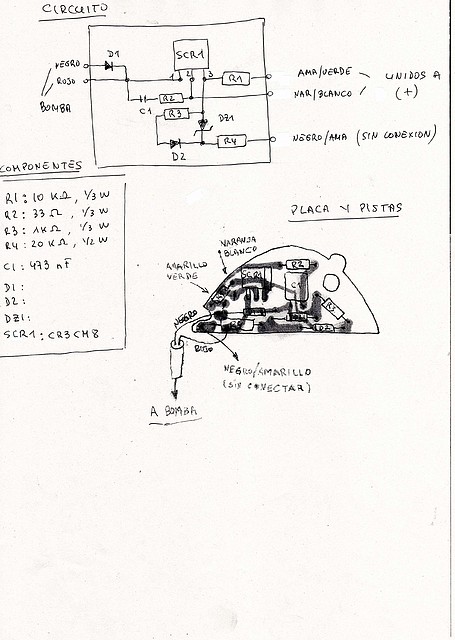 CIRCUITO
D1
SCR1
NEGRO
ROJO
1 2 3
R1
AMA/VERDE
UNIDOS A
(+)
BOMBA
C1
R2
NAR/BLANCO
R3
DZ1
D2
R4
NEGRO/AMA (SIN CONEXION)
COMPONENTES
R1: 10 KΩ, 1/3 W
R2: 33 Ω, 1/3 W
R3: 1KΩ, 1/3 W
R4: 20 KΩ, 1/2 W
C1: 473 nF
D1:
D2:
DZ1:
SCR1: CR3CM8
PLACA Y PISTAS
NARANJA
BLANCO
AMARILLO
VERDE
SCR1
R2
R3
D2
NEGRO
ROJO
NEGRO/AMARILLO
(SIN CONECTAR)
A BOMBA